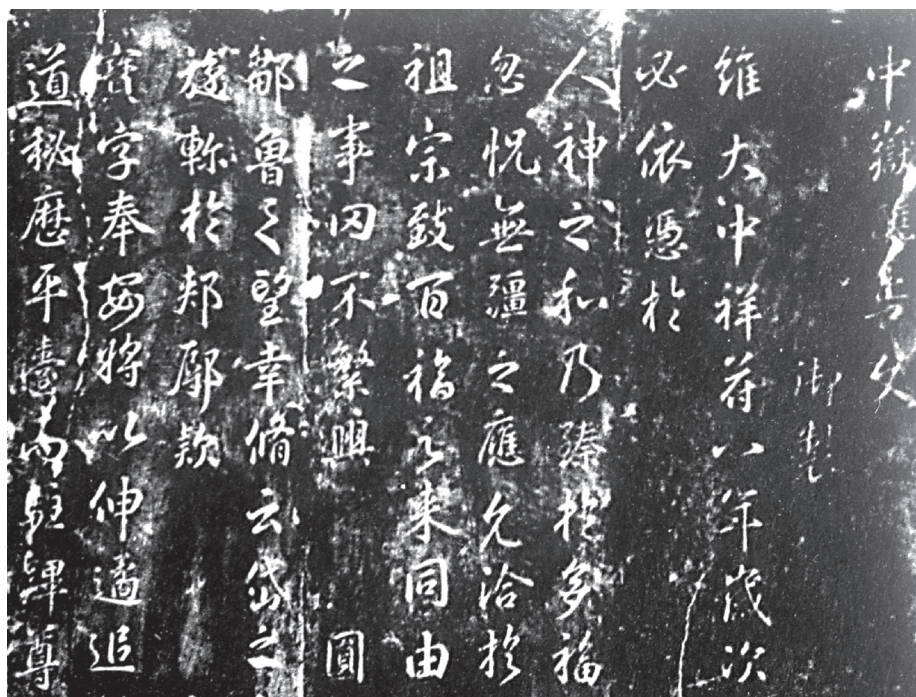 中嶽醮告文
御製
維大中祥符八年歲次
必依憑於
人神之和乃臻於多福
忽恍無疆之應允洽於
祖宗致百福之來同由
之事罔不繁興 圓
鄒魯之望幸脩云岱之
旋軫於郟鄏款
寶字奉安將以伸遹追
道秘歷平臺而駐蹕尊